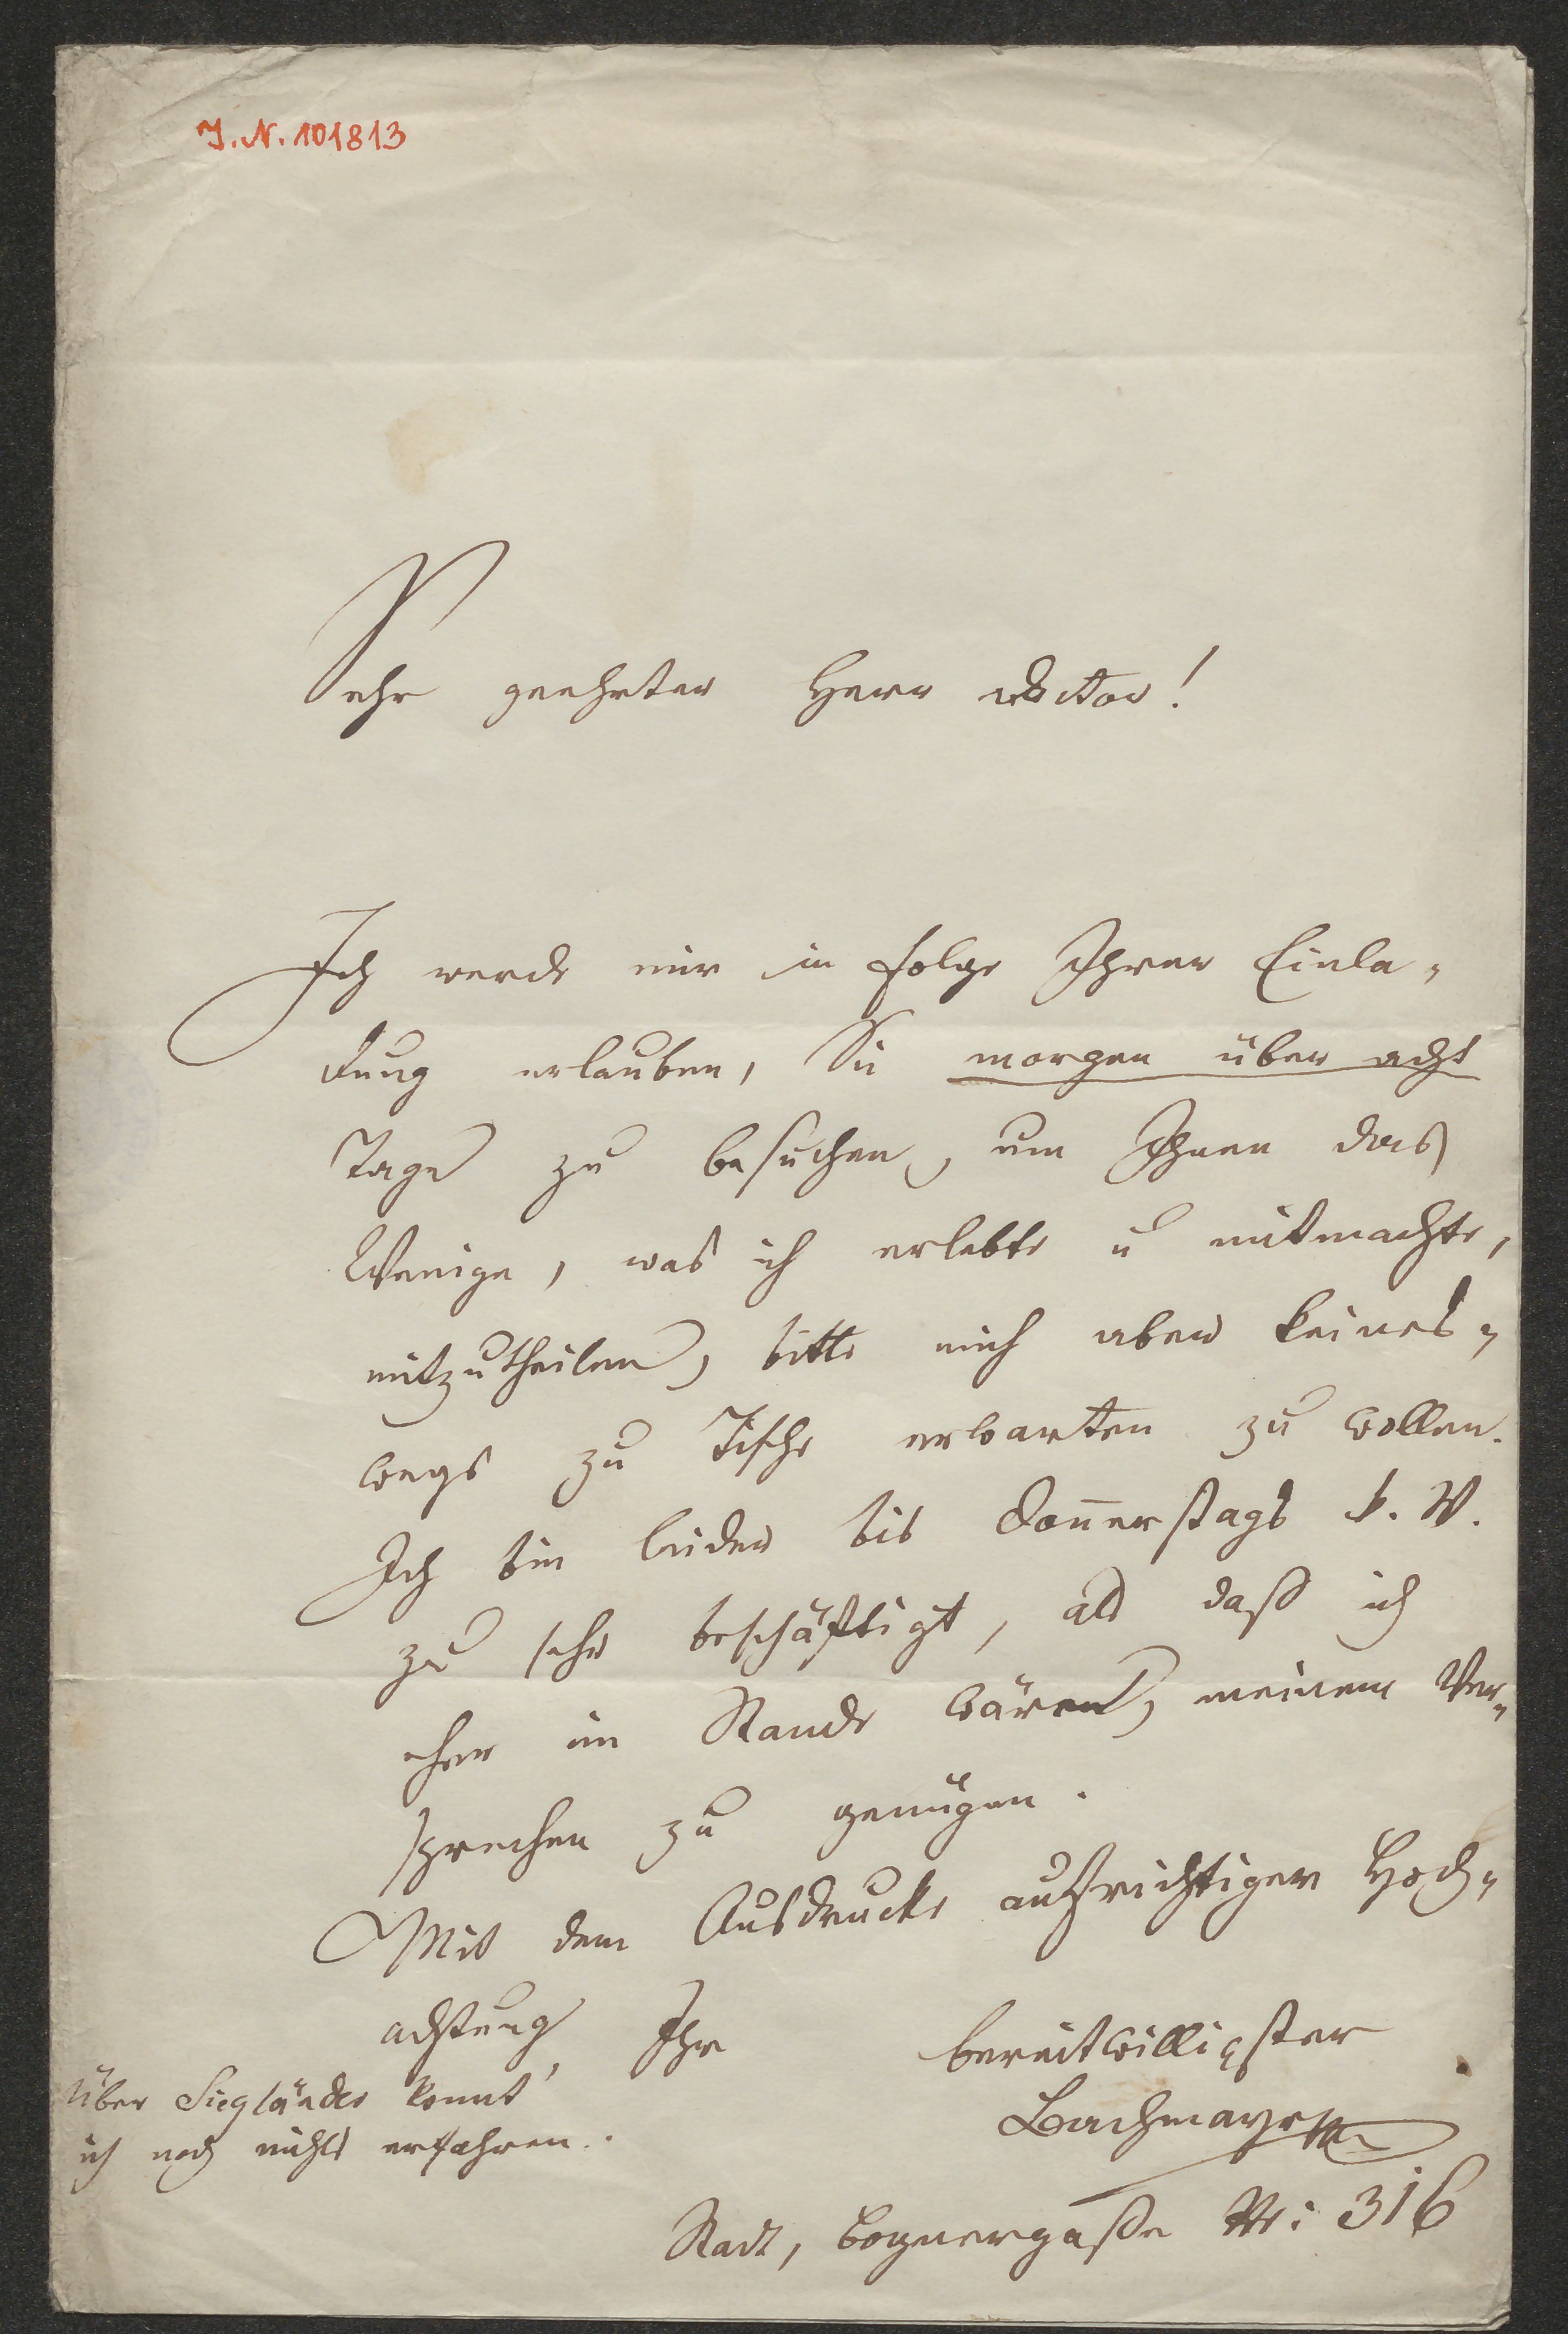 I. N. 101813
Sehr geehrter Herr Doctor!
Ich werde mir in Folge Ihrer Einla-
dung erlauben, Sie morgen über acht
Tage zu besuchen, um Ihnen das
Wenige, was ich erlebte u mitmachte,
mitzutheilen, bitte mich aber keines-
wegs zu Tische erwarten zu wollen.
Ich bin leider bis Donnerstags k. W.
zu sehr beschäftigt, als daß ich
eher im Stande wäre, meinem Ver-
sprechen zu genügen.
Mit dem Ausdrucke aufrichtiger Hoch-
achtung Ihr bereitwilligster
Bachmayr
Über Siegländer konnt'
ich noch nichts erfahren.
Stadt, Bognergaße Nr: 316